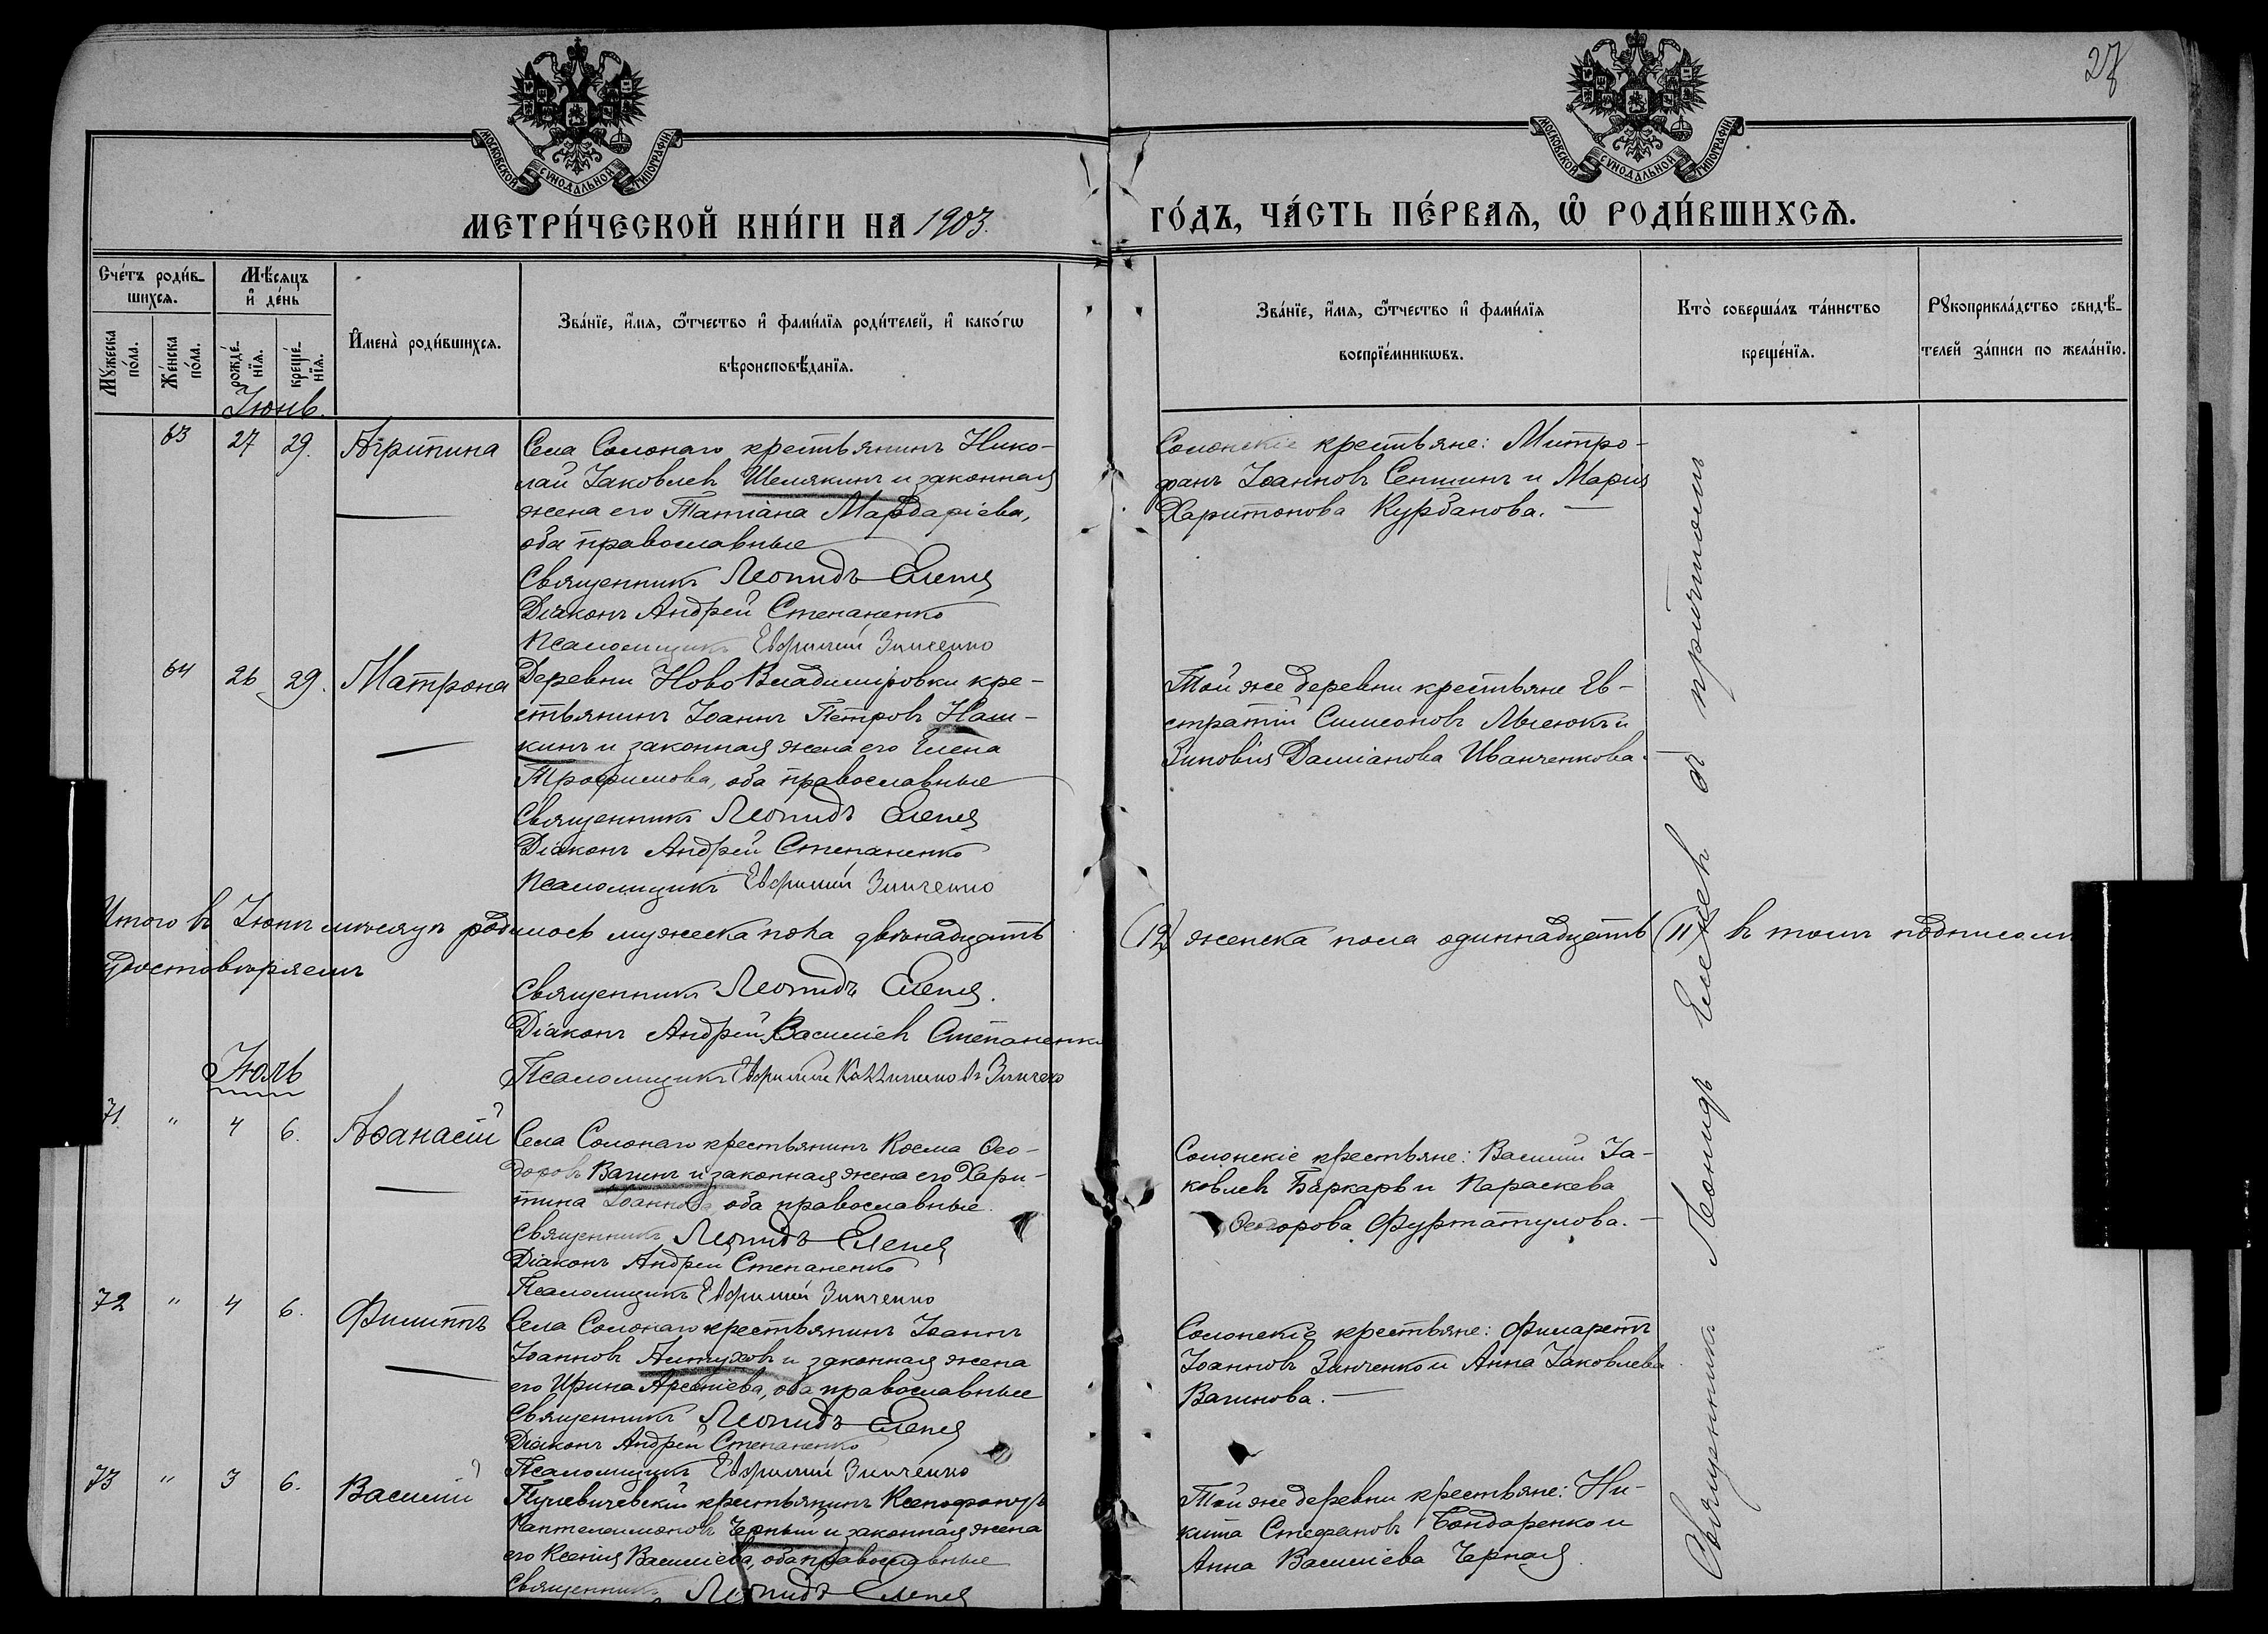 27
МОСКОВСКОЙ СѴНОДАЛЬНОЙ ТИПОГРАФІИ
МОСКОВСКОЙ СѴНОДАЛЬНОЙ ТИПОГРАФІИ
МЕТРИ́ЧЕСКОЙ КНИ́ГИ НА 1903.
ГО́ДЪ, ЧА́СТЬ ПЕ́РВАѦ, Ѽ РОДИ́ВШИХСѦ.
Сче́тъ роди́в-
шихсѧ.
Мꙋ́жеска
по́ла.
Же́нска
по́ла.
Мѣ́сяцъ
и҆ де́нь
рожде́-
нїѧ.
креще́-
нїѧ.
И҆мена̀ роди́вшихсѧ.
Зва́нїе, и҆́мѧ, ѻ҆́тчество и҆ фами́лїѧ роди́телей, и҆ како́гѡ
вѣроисповѣ́данїѧ.
Зва́нїе, и҆́мѧ, ѻ҆́тчество и҆ фами́лїѧ
воспрїе́мникѡвъ.
Кто̀ соверша́лъ та́инство
креще́нїѧ.
Рꙋкоприкла́дство свидѣ́-
телей за́писи по жела́нїю.
Іюнь.
63 27 29. Агрипина
Села Солонаго крестьянинъ Нико-
лай Іаковлевъ Шемякинъ и законная
жена его Татіана Мардаріева,
оба православные
Священникъ Леонидъ Еленев
Діаконъ Андрей Степаненко
Псаломщикъ Евфимій Зинченко
Солонскіе крестьяне: Митро-
фанъ Іоанновъ Сенинъ и Марія
Харитонова Курбанова. —
64 26 29. Матрона
Деревни НовоВладиміровки кре-
стьянинъ Іоаннъ Петровъ Наш-
кинъ и законная жена его Елена
Трофимова, оба православные
Священникъ Леонидъ Еленев
Діаконъ Андрей Степаненко
Псаломщикъ Евфимій Зинченко
Той же деревни крестьяне Ев-
стратій Симеоновъ и
Зиновія Даміанова Иванченкова.
Итого въ Іюнѣ мѣсяцѣ родилось мужеска пола двѣнадцать (12) женска пола одиннадцать (11) въ томъ подписомъ
удостовѣряемъ
Священникъ Леонидъ Еленев.
Діаконъ Андрей Василіевъ Степаненко
Псаломщикъ Евфимій Каллиниковъ Зинченко
Іюль
71 " 4 6. Аѳанасій
Села Солонаго крестьянинъ Косма Ѳео-
доровъ Вагинъ и законная жена его Хари-
тина Іоаннова, оба православные.
Священникъ Леонидъ Еленев
Діаконъ Андрей Степаненко
Псаломщикъ Евфимій Зинченко
Солонскіе крестьяне: Василій Іа-
ковлевъ Баркаръ и Параскева
Ѳеодорова Фуртатулова. —
72 " 4 6. Филиппъ
Села Солонаго крестьянинъ Іоаннъ
Іоанновъ Алтуховъ и законная жена
его Ирина Арсеніева, оба православные
Священникъ Леонидъ Еленев
Діаконъ Андрей Степаненко
Псаломщикъ Евфимій Зинченко
Солонскіе крестьяне: Филаретъ
Іоанновъ Зинченко и Анна Іаковлева
Вагинова. —
73 " 3 6. Василій
крестьянинъ Ксенофонтъ
Пантелеимоновъ Черный и законная жена
его Ксенія Василіева, оба православные
Священникъ Леонидъ Еленев
Той же деревни крестьяне: Ни-
кита Стефановъ Бондаренко и
Анна Василіева Черная.
Священникъ Леонидъ Еленевъ съ причтомъ